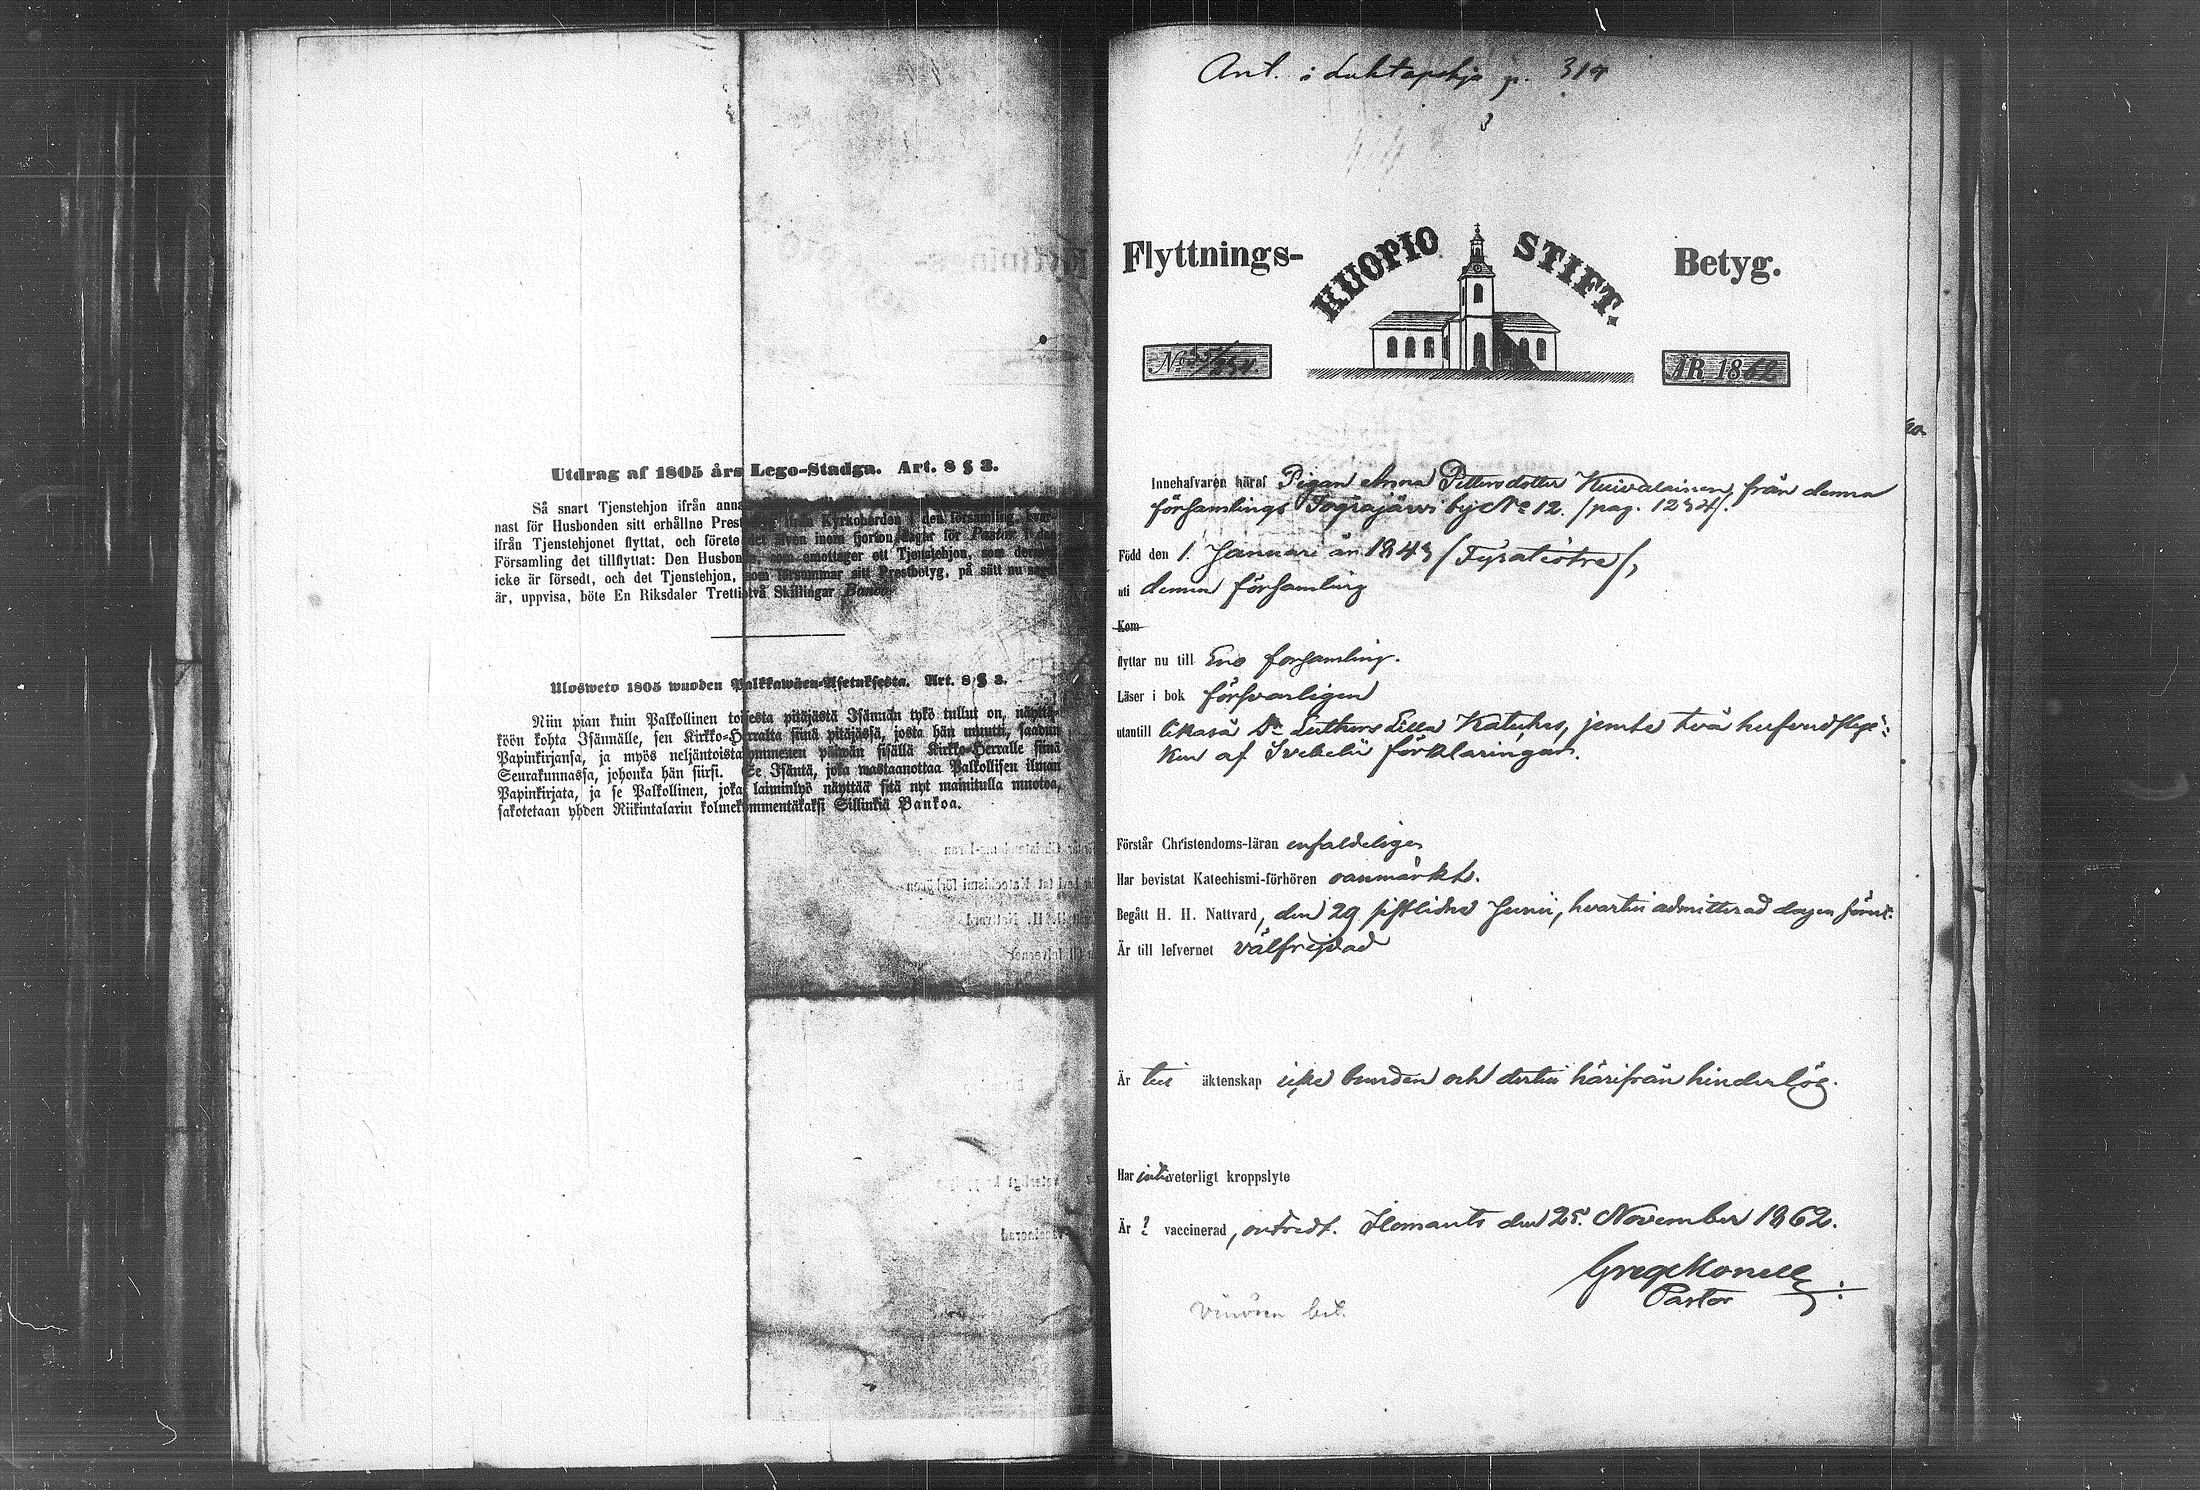 Utdrag af 1805 års Lego-Stadga. Art. 8 § 3.
Så snart Tjenstehjon ifrån
nast för Husbonden sitt erhållne Kyrkoherden i den församling,
ifrån Tjenstehjonet flyttat, och förete det äfven inom fjorton dagar för Pastor i den
Församling det tillflyttat: Den Husbonde, som emottager ett Tjenstehjon, som
icke är försedt, och det Tjenstehjon, som försummar sitt Prestbetyg, på sätt nu sagdt
är, uppvisa, böte En Riksdaler Trettiotvå Skillingar Banco.
Ulosweto 1805 wuoden Palkkawäen-Asetuksesta. Art. 8 § 3.
Niin pian kuin Palkollinen toisesta pitäjästä Isännän tykö tullut on,
köön kohta Isännälle, sen Kirkko-Herralta siinä pitäjässä, josta hän muutti, saadun
Papinkirjansa, ja myös neljäntoistakymmenen päiwän sisällä Kirkko-Herralle siinä
Seurakunnassa, johonka hän siirsi. Se Isäntä, joka wastaanottaa Palkollisen ilman
Papinkirjata, ja se Palkollinen, joka laiminlyö näyttää sitä nyt mainitulla muotoa,
sakotetaan yhden Riikintalarin kolmekymmentäkaksi Sillinkiä Bankoa.
Ant. i Luhtapohja p. 314
3
Flyttnings- KUOPIO STIFT. Betyg.
No ÅR 1862
Innehafvaren häraf Pigan Anna Pettersdotter Kuivalainen, från denna
församlings Sograjärwi by No 12. /pag. 1234/.
Född den 1. Januari år 1843 /Fyratiotre/,
uti denna församling
Kom
flyttar nu till Eno församling.
Läser i bok försvarligen
utantill likaså Dr Luthers Lilla Kateches, jemte två hufvudstyc-
ken af Svebelii förklaringar.
Förstår Christendoms-läran enfaldeligen
Har bevistat Katechismi-förhören oanmärkt.
Begått H. H. Nattvard, den 29 sistlidne Junii, hvartill admitterad dagen förut.
Är till lefvernet välfrejdad
Är till äktenskap icke bunden och dertill härifrån hinderlös.
Har intet veterligt kroppslyte
Är ? vaccinerad, Ilomants den 25. November 1862.
Greg. Monell
Pastor